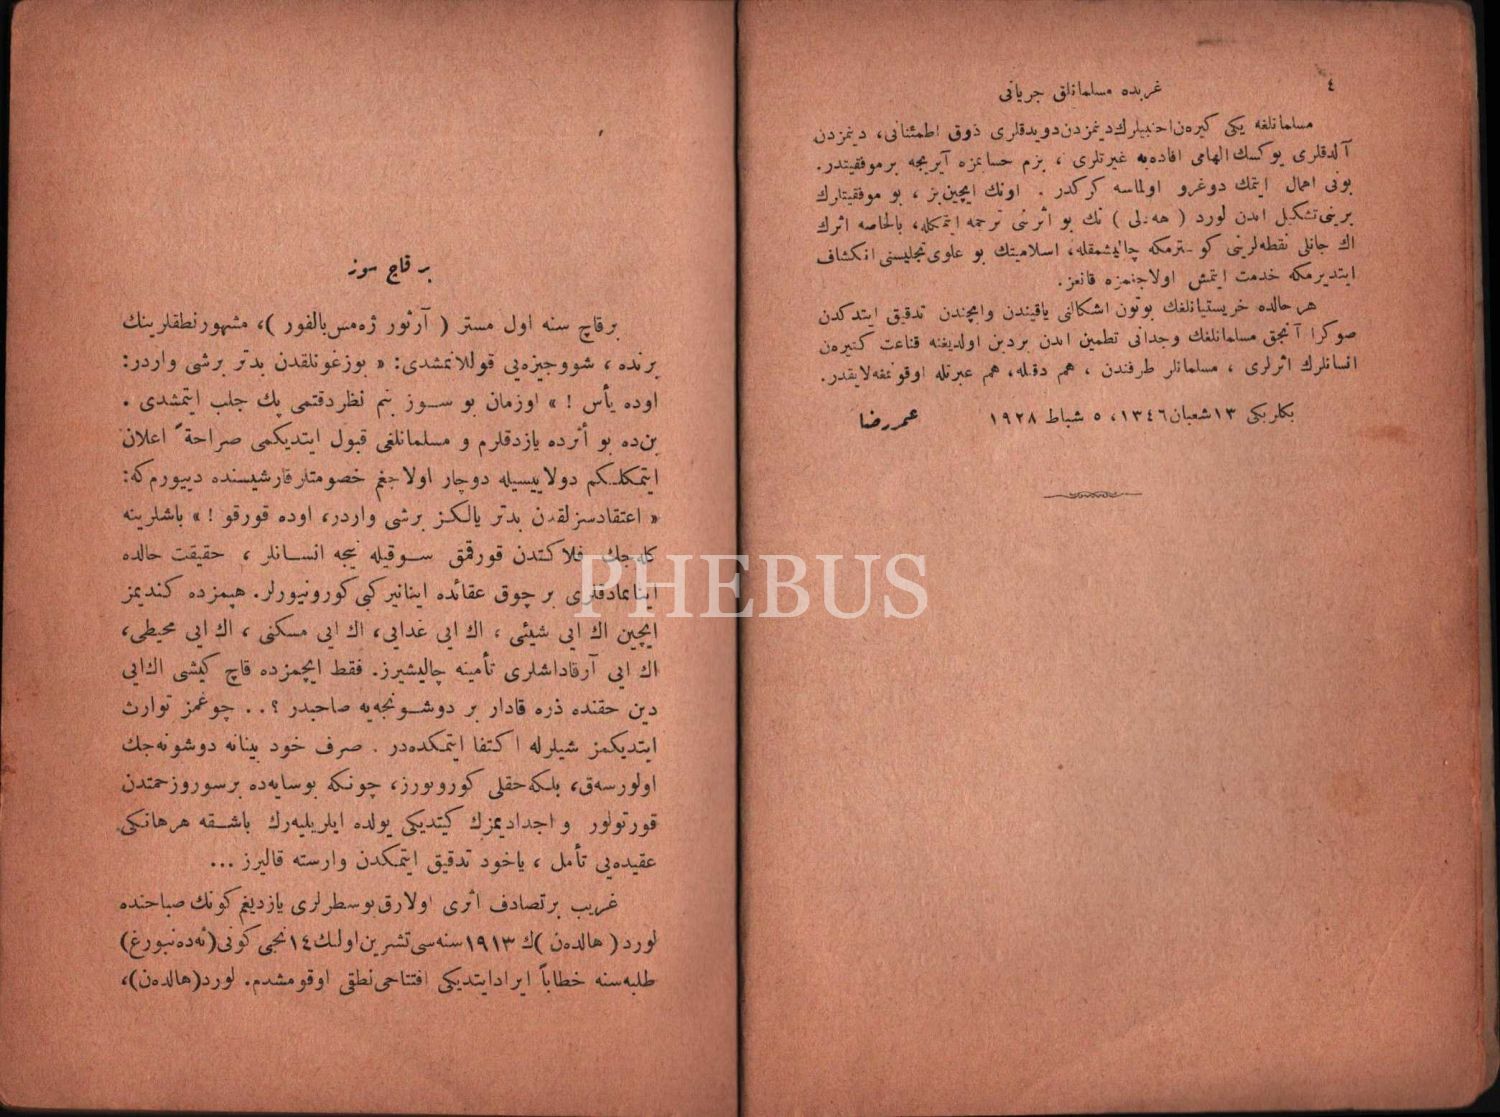 ٤
غربده مسلمانلق جریانی
مسلمانلغه یكی كیره‌ن اجنبیلرك دینمزدن دویدقلری ذوق اطمئنانی، دینمزدن
آلدقلری یوكسك الهامی افاده‌یه غیرتلری ، بزم حسابمزه آیریجه برموفقیتدر.
بونی اهمال ایتمك دوغرو اولماسه كركدر . اونك ایچین بز ، بو موفقیتلرك
برینی تشكیل ایدن لورد ( هه‌دلی ) نك بو اثرینی ترجمه ایتمكله، بالخاصه اثرك
اك جانلی نقطه‌لرینی كوسترمكه چالیشمقله، اسلامیتك بو علوی تجلیسنی انكشاف
ایتدیرمكه خدمت ایتمش اولاجغمزه قانعز.
هر حالده خریستیانلغك بوتون اشكالنی یاقیندن وایچندن تدقیق ایتدكدن
صوكرا آنجق مسلمانلغك وجدانی تطمین ایدن بردین اولدیغنه قناعت كتیره‌ن
انسانلرك اثرلری ، مسلمانلر طرفندن ، هم دقتله، هم عبرتله اوقونمغه لایقدر.
بكلربكی ١٣ شعبان ١٣٤٦، ٥ شباط ١٩٢٨
عمر رضا
بر قاچ سوز
برقاچ سنه اول مستر ( آرثور ژه‌مس بالفور )، مشهور نطقلرینك
برنده ، شو وجیزه‌یی قوللانمشدی: « بوزغونلقدن بدتر برشی واردر:
اوده یأس ! » اوزمان بو سوز بنم نظردقتمی پك جلب ایتمشدی .
بن‌ده بو أثرده یازدقلرم و مسلمانلغی قبول ایتدیكمی صراحةً اعلان
ایتمكلكم دولاییسیله دوچار اولاجغم خصومتلر قارشیسنده دییورم كه:
« اعتقادسزلقدن بدتر یالكز برشی واردر، اوده قورقو ! » باشلرینه
كله‌جك فلاكتدن قورقمق سوقیله نیجه انسانلر ، حقیقت حالده
اینانمادقلری بر چوق عقائده اینانیر كبی كورونیورلر. هپمزده كندیمز
ایچین اك ایی شیئی ، اك ایی غدایی، اك ایی مسكنی ، اك ایی محیطی،
اك ایی آرقاداشلری تأمینه چالیشیرز. فقط ایچمزده قاچ كیشی اك‌ایی
دین حقنده ذره قادار بر دوشونجه‌یه صاحبدر ؟.. چوغمز توارث
ایتدیكمز شیلرله اكتفا ایتمكده‌در . صرف خود بینانه دوشونه‌جك
اولورسه‌ق، بلكه حقلی كورونورز، چونكه بوسایه‌ده برسورو زحمتدن
قورتولور و اجدادیمزك كیتدیكی یولده ایلریلیه‌رك باشقه هرهانكی
عقیده‌یی تأمل ، یاخود تدقیق ایتمكدن وارسته قالیرز ...
غریب برتصادف اثری اولارق بوسطرلری یازدیغم كونك صباحنده
لورد ( هالده‌ن )ك ١٩١٣ سنه‌سی تشرین اولك ١٤نجی كونی (ئه‌ده‌نبورغ)
طلبه‌سنه خطاباً ایراد ایتدیكی افتتاحی نطقی اوقومشدم. لورد(هالده‌ن)،
PHEBUS